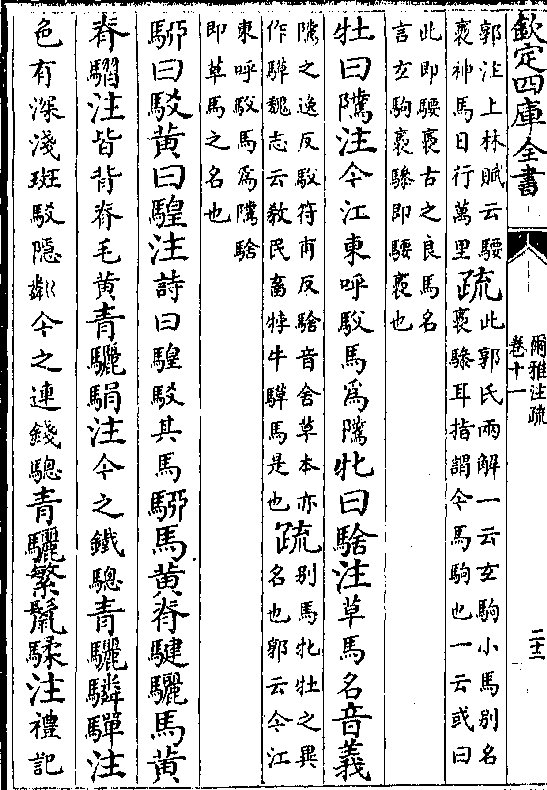 欽定四庫全書
爾雅注疏
卷十一
二十二
郭注上林賦云騕
褭神馬日行萬里
疏
此郭氏兩解一云玄駒小馬別名
褭驂耳指謂今馬駒也一云或曰
此即騕褭古之良馬名
言玄駒褭驂即騕褭也
牡曰騭注今江東呼駁馬爲騭牝曰騇注草馬名音義
騭之逸反駁符甫反騇音舍草本亦
作騲魏志云教民畜牸牛騲馬是也
疏
別馬牝牡之異
名也郭云今江
東呼駁馬爲騭騇
即草馬之名也
駵曰駁黃曰騜注詩曰騜駁其馬駵馬黃脊騝驪馬黃
脊騽注皆背脊毛黃青驪駽注今之鐵驄青驪驎驒注
色有深淺斑駁隱粼今之連錢驄青驪繁鬛騥注禮記